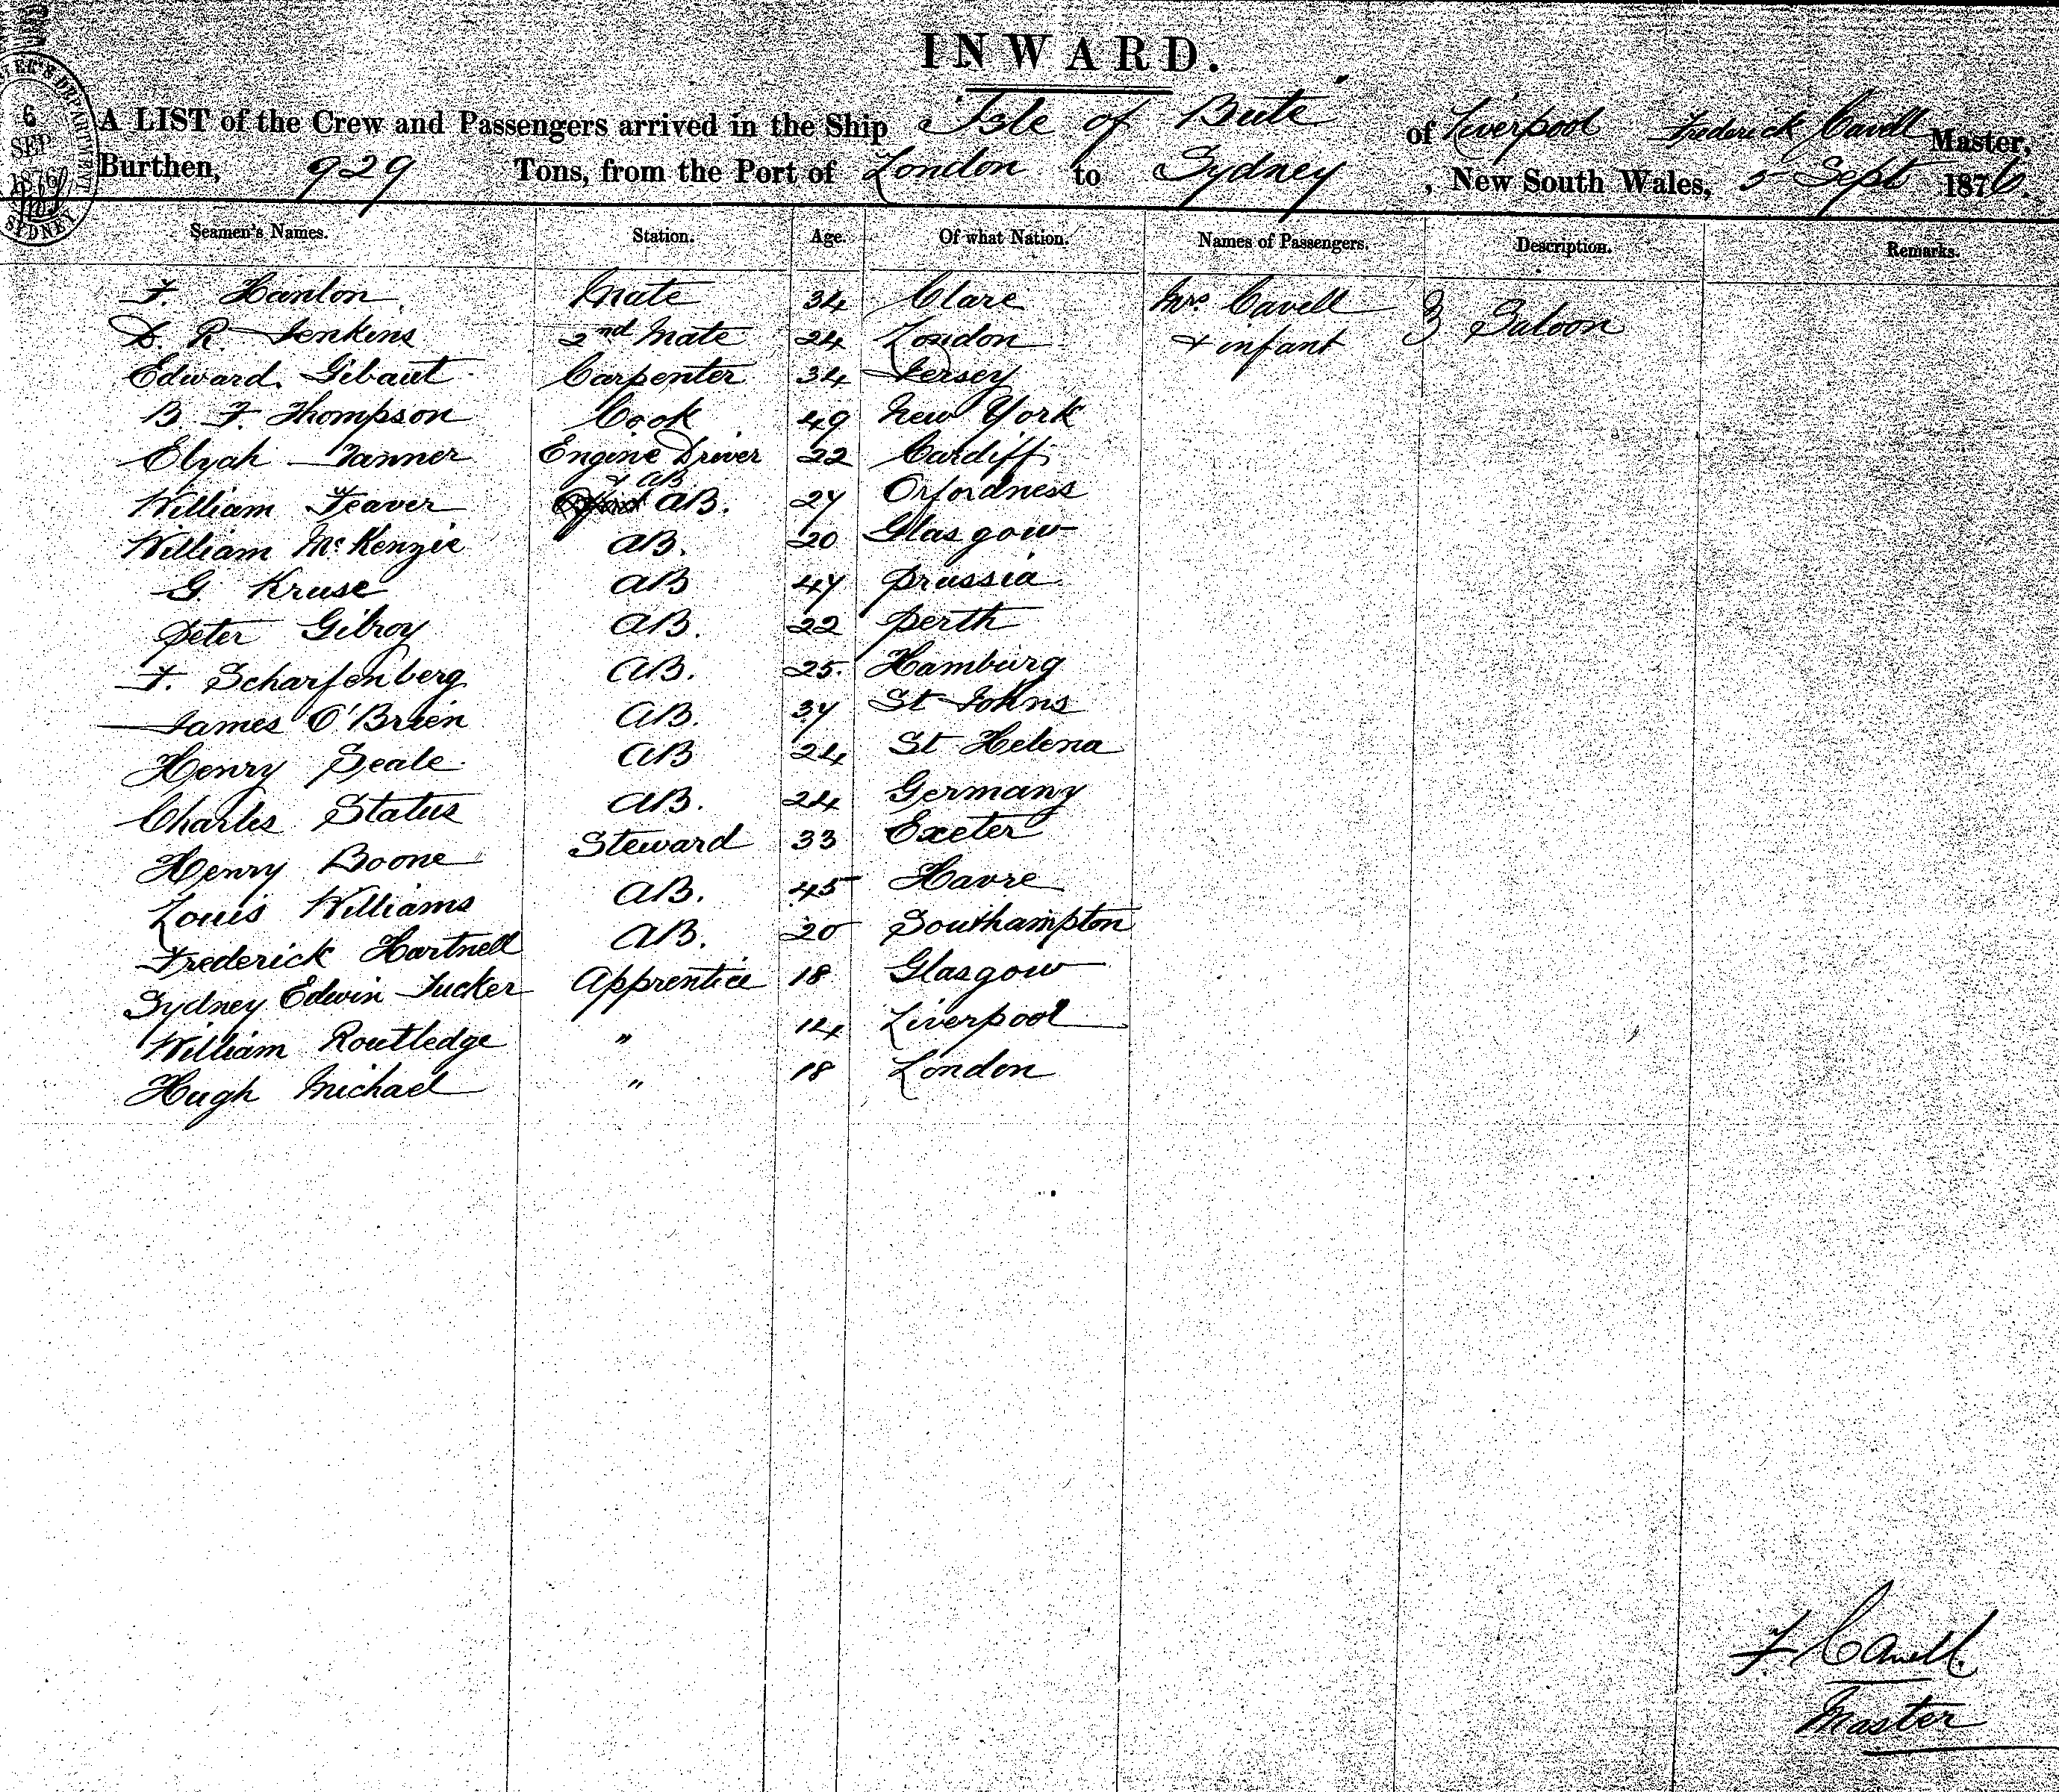 INWARD.
A LIST of the Crew and Passengers arrived in the Ship "Isle of Bute" of Liverpool Frederick Cavell Master,
Burthen, 929 Tons, from the Port of London to Sydney, New South Wales, 5 Sept 1876.
6 SEP 1876 SYDNEY
Seamen's Names. Station. Age. Of what Nation. Names of Passengers. Description. Remarks.
F. Hanlon Mate 34 Clare Mrs. Cavell } Saloon
D. R. Jenkins 2nd Mate 24 London + infant
Edward Gibaut Carpenter 34 Jersey
B. F. Thompson Cook 49 New York
Elijah Tanner Engine Driver 22 Cardiff
+ AB
William Feaver AB. 27 Orfordness
William McKenzie AB. 20 Glasgow
G. Kruse AB 47 Prussia
Peter Gilroy AB. 22 Perth
F. Scharfenberg AB. 25 Hamburg
James O'Brien AB. 37 St Johns
Henry Seale AB 24 St Helena
Charles Status AB. 24 Germany
Henry Boone Steward 33 Exeter
Louis Williams AB. 45 Havre
Frederick Hartnell AB. 20 Southampton
Sydney Edwin Tucker Apprentice 18 Glasgow
William Routledge " 14 Liverpool
Hugh Michael " 18 London
F Cavell.
Master